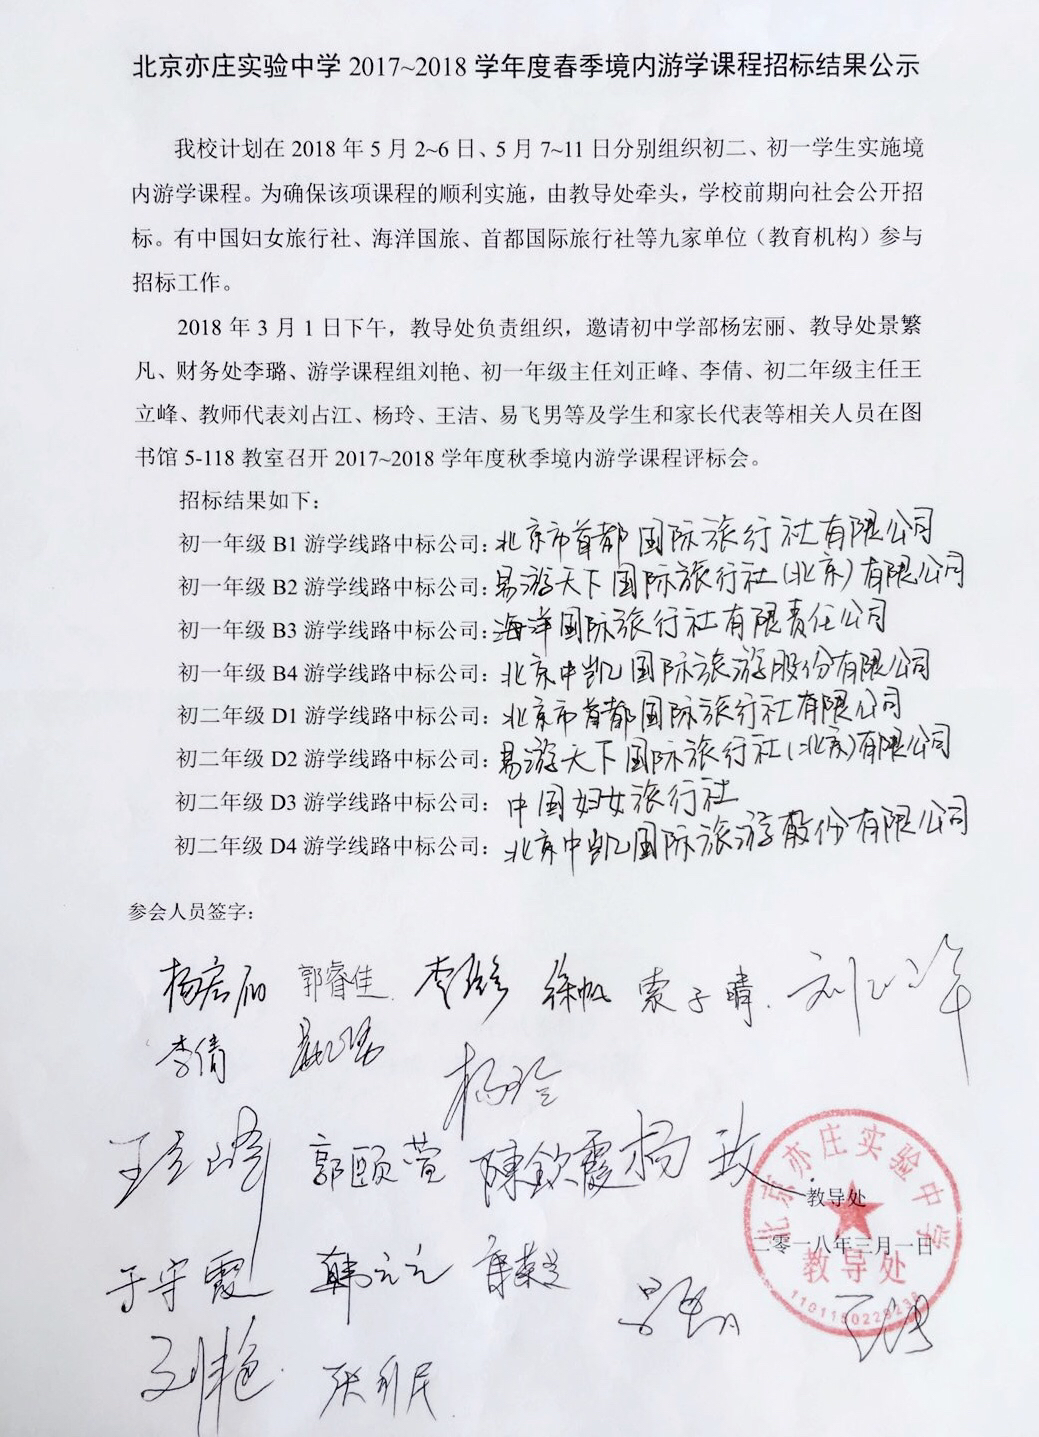 北京亦庄实验中学 2017~2018 学年度春季境内游学课程招标结果公示
我校计划在 2018 年 5 月 2~6 日、5 月 7~11 日分别组织初二、初一学生实施境
内游学课程。为确保该项课程的顺利实施，由教导处牵头，学校前期向社会公开招
标。有中国妇女旅行社、海洋国旅、首都国际旅行社等九家单位（教育机构）参与
招标工作。
2018 年 3 月 1 日下午，教导处负责组织，邀请初中学部杨宏丽、教导处景繁
凡、财务处李璐、游学课程组刘艳、初一年级主任刘正峰、李倩、初二年级主任王
立峰、教师代表刘占江、杨玲、王洁、易飞男等及学生和家长代表等相关人员在图
书馆 5-118 教室召开 2017~2018 学年度秋季境内游学课程评标会。
招标结果如下：
初一年级 B1 游学线路中标公司：北京市首都国际旅行社有限公司
初一年级 B2 游学线路中标公司：易游天下国际旅行社（北京）有限公司
初一年级 B3 游学线路中标公司：海洋国际旅行社有限责任公司
初一年级 B4 游学线路中标公司：北京中凯国际旅游股份有限公司
初二年级 D1 游学线路中标公司：北京市首都国际旅行社有限公司
初二年级 D2 游学线路中标公司：易游天下国际旅行社（北京）有限公司
初二年级 D3 游学线路中标公司：中国妇女旅行社
初二年级 D4 游学线路中标公司：北京中凯国际旅游股份有限公司
参会人员签字：
杨宏丽 郭睿佳 李璐 徐帆 索子晴 刘正峰
李倩
杨玲
王立峰 郭颐萱 陳欽霞 杨玫
北京亦庄实验中学
教导处
二零一八年三月一日
教导处
于守霞 韩元元
刘艳 张利民